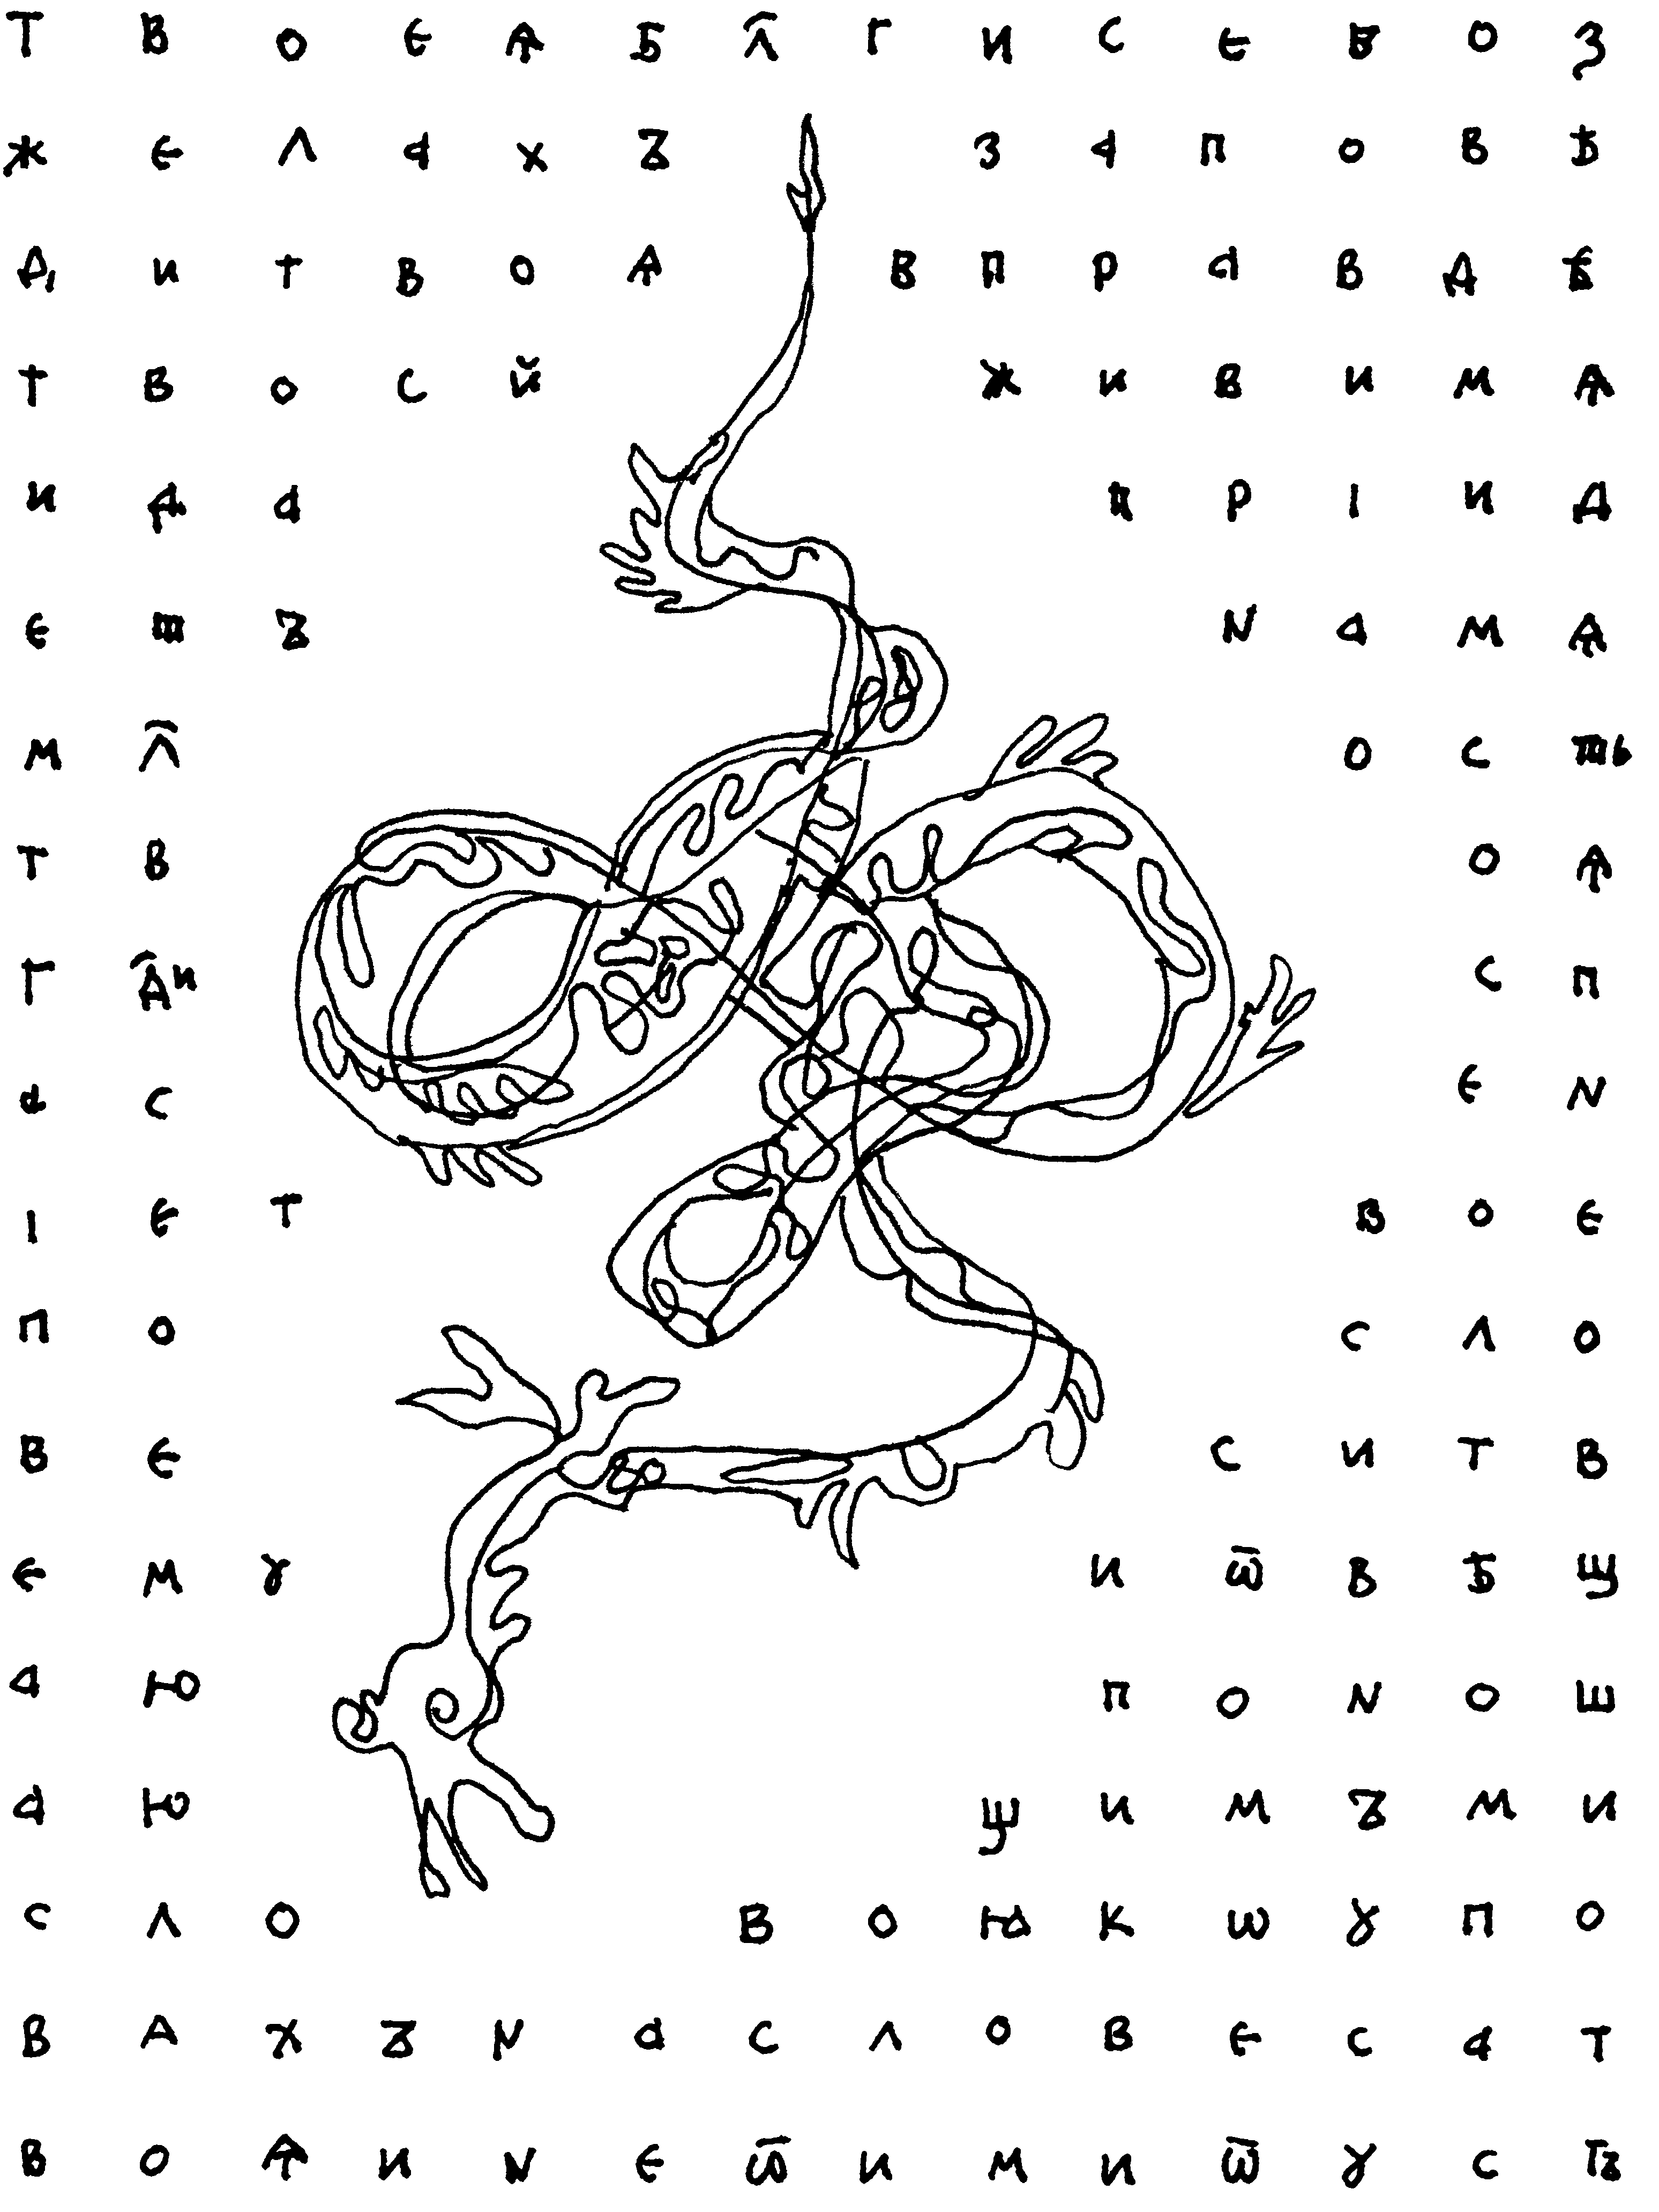 Т В О Є Ѧ Б Л҃ Г И С Є В О З
Ж Є Л А Х Ъ З А П О В Ѣ
Д И Т В О Ѧ В П Р А В Д Ѣ
Т В О С Й Ж И В И М Ѧ
И Д А П Р І И Д
Є Т Ъ Н А М Ѧ
М Л҃ О С ТЬ
Т В О Ѧ
Г Д҃И С П
А С Є Н
І Є Т В О Є
П О С Л О
В Є С И Т В
Є М Ꙋ И Ѿ В Ѣ Щ
А Ю П О Н О Ш
А Ю Щ И М Ъ М И
С Л О В О Ꙗ К Ѡ Ꙋ П О
В А Х Ъ Н А С Л О В Є С А Т
В О Ѧ И Н Є Ѿ И М И Ѿ Ꙋ С ТЪ